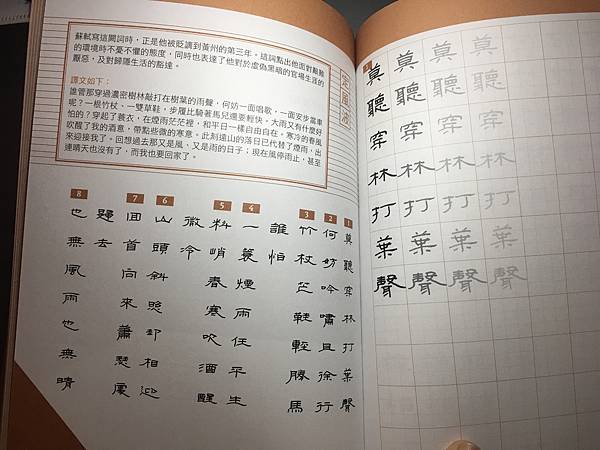 定風波
蘇軾寫這闕詞時，正是他被貶調到黃州的第三年。這詞點出他面對艱難
的環境時不憂不懼的態度，同時也表達了他對於虛偽黑暗的官場生涯的
厭惡，及對歸隱生活的豁達。
譯文如下：
誰管那穿過濃密樹林敲打在樹葉的雨聲，何妨一面唱歌，一面安步當車
呢？一根竹杖、一雙草鞋，步履比騎著馬兒還要輕快，大雨又有什麼好
怕的？穿起了蓑衣，在煙雨茫茫裡，和平日一樣自由自在。寒冷的春風
吹醒了我的酒意，帶點些微的寒意。此刻遠山的落日已代替了煙雨，出
來迎接我了。回想過去那又是風、又是雨的日子；現在風停雨止，甚至
連晴天也沒有了，而我也要回家了。
1 莫聽穿林打葉聲
2 何妨吟嘯且徐行
3 竹杖芒鞋輕勝馬
誰怕
4 一蓑煙雨任平生
5 料峭春寒吹酒醒
微冷
6 山頭斜照卻相迎
7 回首向來蕭瑟處
歸去
8 也無風雨也無晴
1
莫聽穿林打葉聲
莫聽穿林打葉聲
莫聽穿林打葉聲
莫聽穿林打葉聲